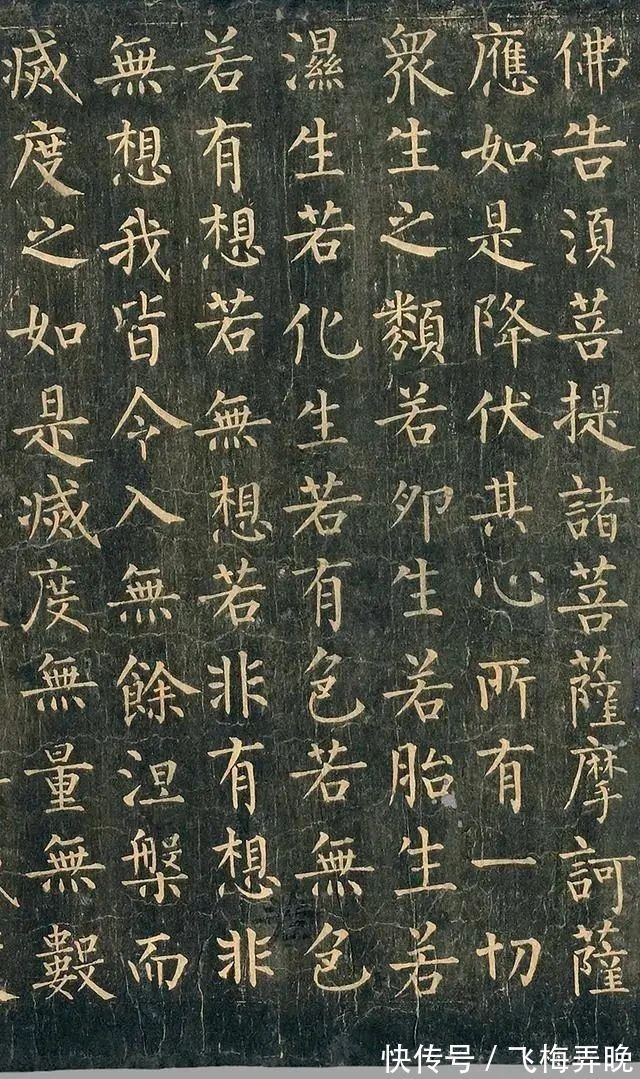 佛告須菩提諸菩薩摩訶薩
應如是降伏其心所有一切
衆生之類若卵生若胎生若
濕生若化生若有色若無色
若有想若無想若非有想非
無想我皆令入無餘涅槃而
滅度之如是滅度無量無數
快传号／飞梅弄晚